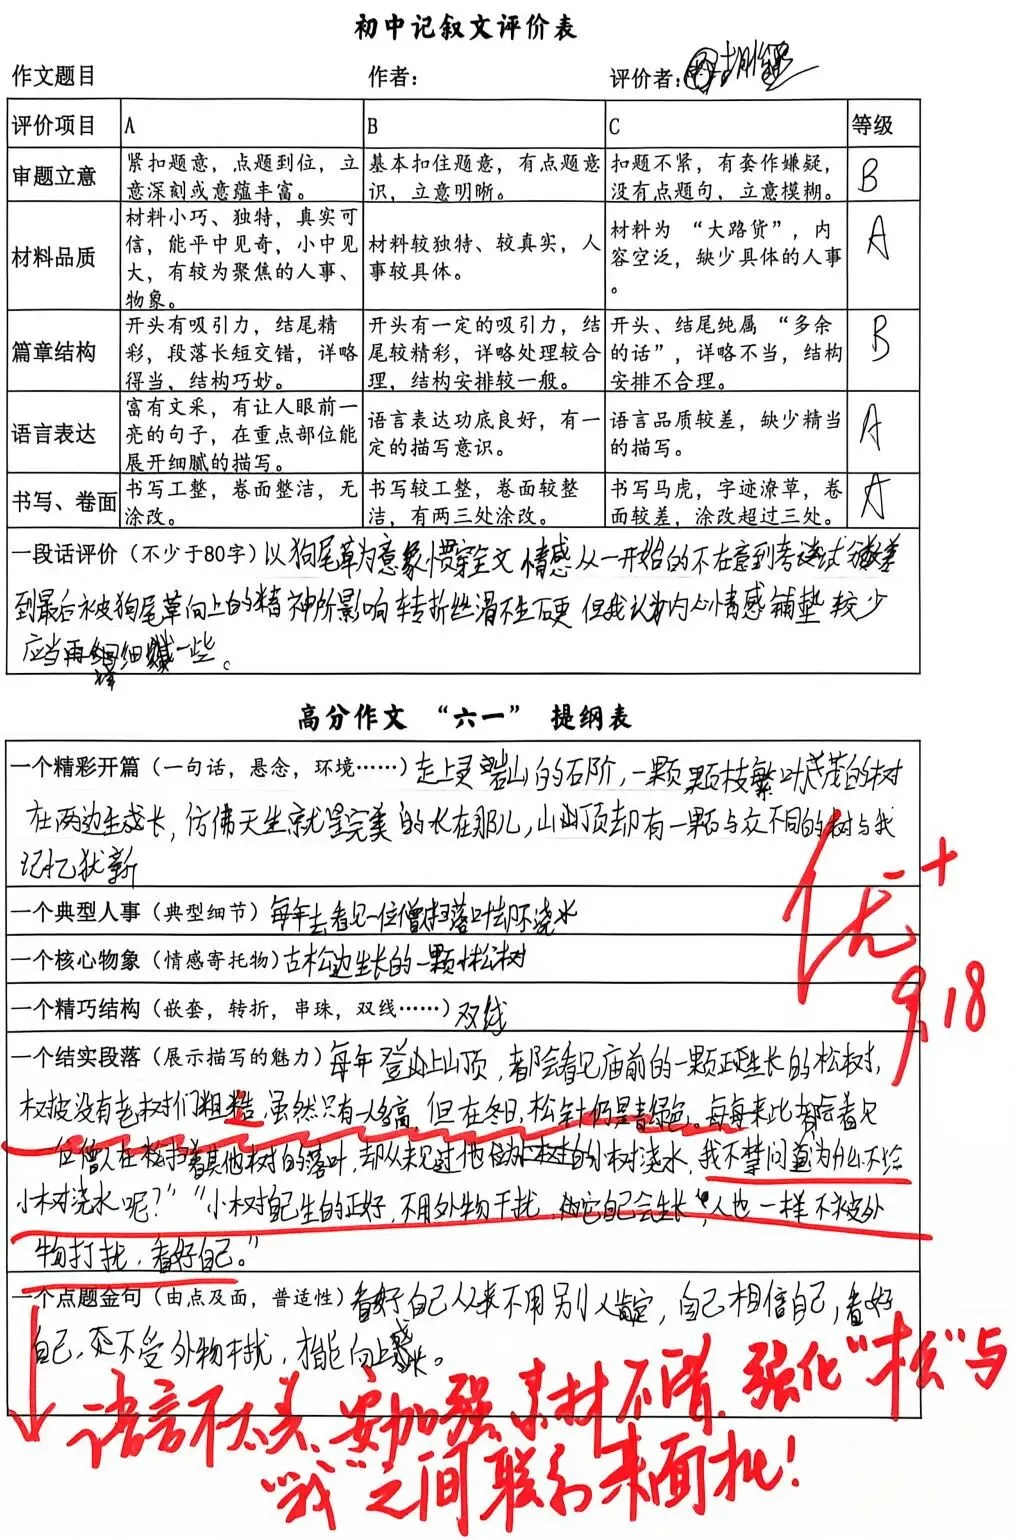 初中记叙文评价表
作文题目 作者： 评价者：
评价项目 A B C 等级
审题立意 紧扣题意，点题到位，立意深刻或意蕴丰富。 基本扣住题意，有点题意识，立意明晰。 扣题不紧，有套作嫌疑，没有点题句，立意模糊。 B
材料品质 材料小巧、独特，真实可信，能平中见奇，小中见大，有较为聚焦的人事、物象。 材料较独特、较真实，人事较具体。 材料为“大路货”，内容空泛，缺少具体的人事。 A
篇章结构 开头有吸引力，结尾精彩，段落长短交错，详略得当，结构巧妙。 开头有一定的吸引力，结尾较精彩，详略处理较合理，结构安排较一般。 开头、结尾纯属“多余的话”，详略不当，结构安排不合理。 B
语言表达 富有文采，有让人眼前一亮的句子，在重点部位能展开细腻的描写。 语言表达功底良好，有一定的描写意识。 语言品质较差，缺少精当的描写。 A
书写、卷面 书写工整，卷面整洁，无涂改。 书写较工整，卷面较整洁，有两三处涂改。 书写马虎，字迹潦草，卷面较差，涂改超过三处。 A
一段话评价（不少于80字）以狗尾草为意象惯穿全文 情感从一开始的不在意到考试
到最后被狗尾草向上的精神所影响 转折丝滑不生硬 但我认为内心情感铺垫较少
应当再细一些。
高分作文“六一”提纲表
一个精彩开篇（一句话，悬念，环境……）走上灵岩山的石阶，一颗颗枝繁叶茂的树
在两边生长，仿佛天生就是完美的长在那儿，山顶却有一颗与众不同的树与我
记忆犹新
一个典型人事（典型细节）每年去看见一位僧扫落叶却不浇水
一个核心物象（情感寄托物）古松边生长的一颗小松树
一个精巧结构（嵌套，转折，串珠，双线……）双线
一个结实段落（展示描写的魅力）每年登上山顶，都会看见庙前的一颗正生长的松树，
枝披没有老树们粗糙，虽然只有一人多高，但在冬日，松针仍是青绿色。每每来此都看见
位僧人在扫着其他树的落叶，却从未见过他给小树浇水，我不禁问道为什么不给
小树浇水呢？”“小树自己生的正好，不用外物干扰，它自己会生长”，人也一样不被外
物打扰，看好自己。”
一个点题金句（由点及面，普适性）看好自己从来不用别人肯定，自己相信自己，看好
自己，不受外物干扰，才能向上成长。
优+
9.18
语言不太美，要加强，素材不错，强化“松”与
“我”之间联系 来面批！